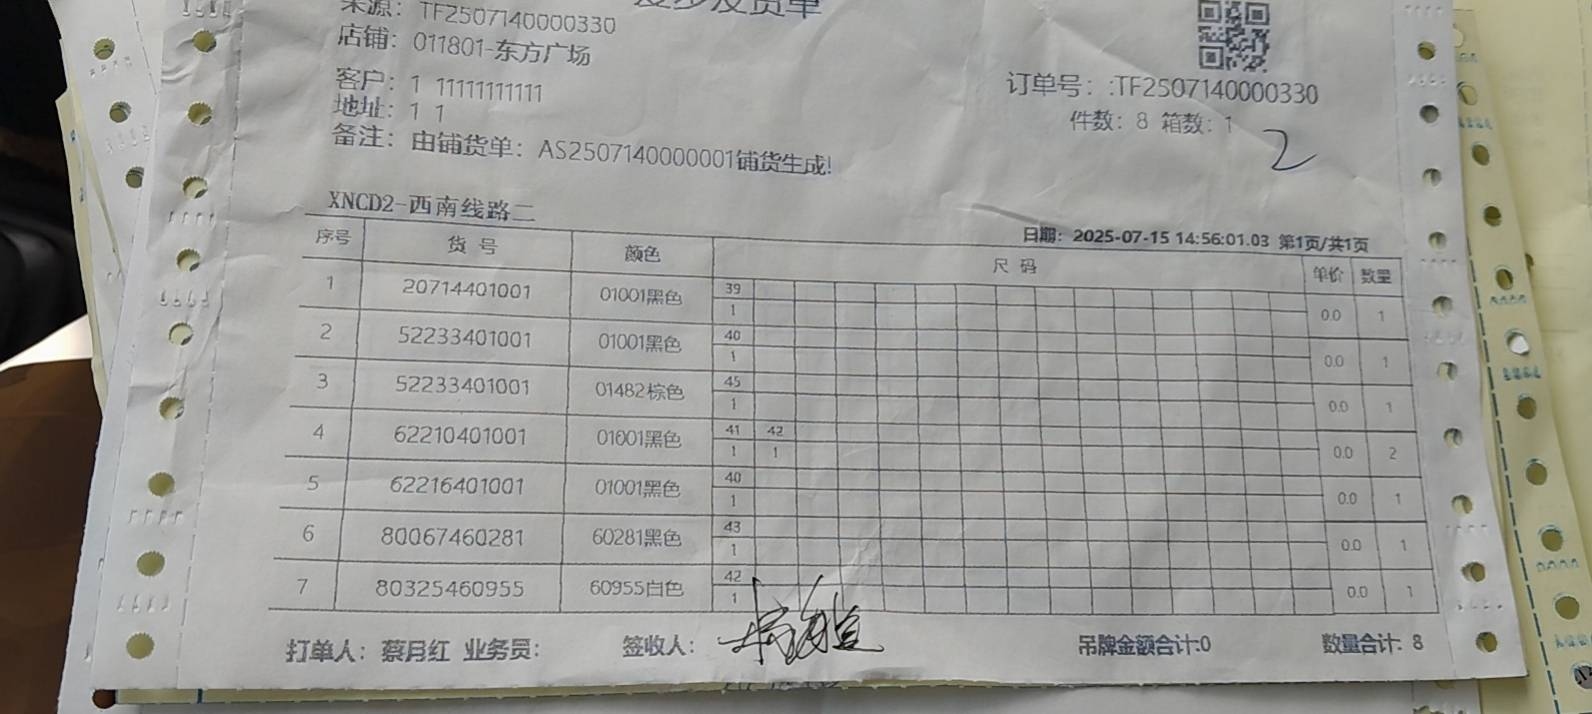 发货单
来源：TF2507140000330
店铺：011801-东方广场
客户：1 11111111111
地址：1 1
备注：由铺货单：AS2507140000001铺货生成!
订单号：:TF2507140000330
件数：8 箱数：1
2
XNCD2-西南线路二
日期：2025-07-15 14:56:01.03 第1页/共1页
序号 货号 颜色 尺码 单价 数量
1 20714401001 01001黑色 39 0.0 1
1
2 52233401001 01001黑色 40 0.0 1
1
3 52233401001 01482棕色 45 0.0 1
1
4 62210401001 01001黑色 41 42 0.0 2
1 1
5 62216401001 01001黑色 40 0.0 1
1
6 80067460281 60281黑色 43 0.0 1
1
7 80325460955 60955白色 42 0.0 1
1
打单人：蔡月红 业务员： 签收人： 吊牌金额合计:0 数量合计: 8